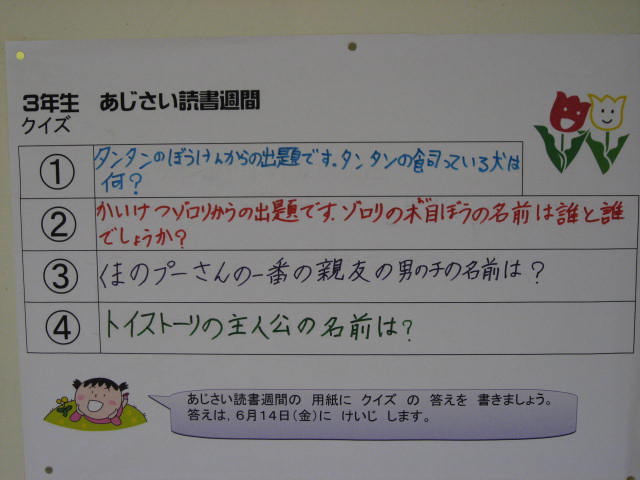 3年生 あじさい読書週間
クイズ
① タンタンのぼうけんからの出題です。タンタンの飼っている犬は
何?
② かいけつゾロリからの出題です。ゾロリの本目ぼうの名前は誰と誰
でしょうか?
③ くまのプーさんの一番の親友の男の子の名前は?
④ トイストーリの主人公の名前は?
あじさい読書週間の 用紙に クイズ の 答えを 書きましょう。
答えは、6月14日(金)に けいじ します。